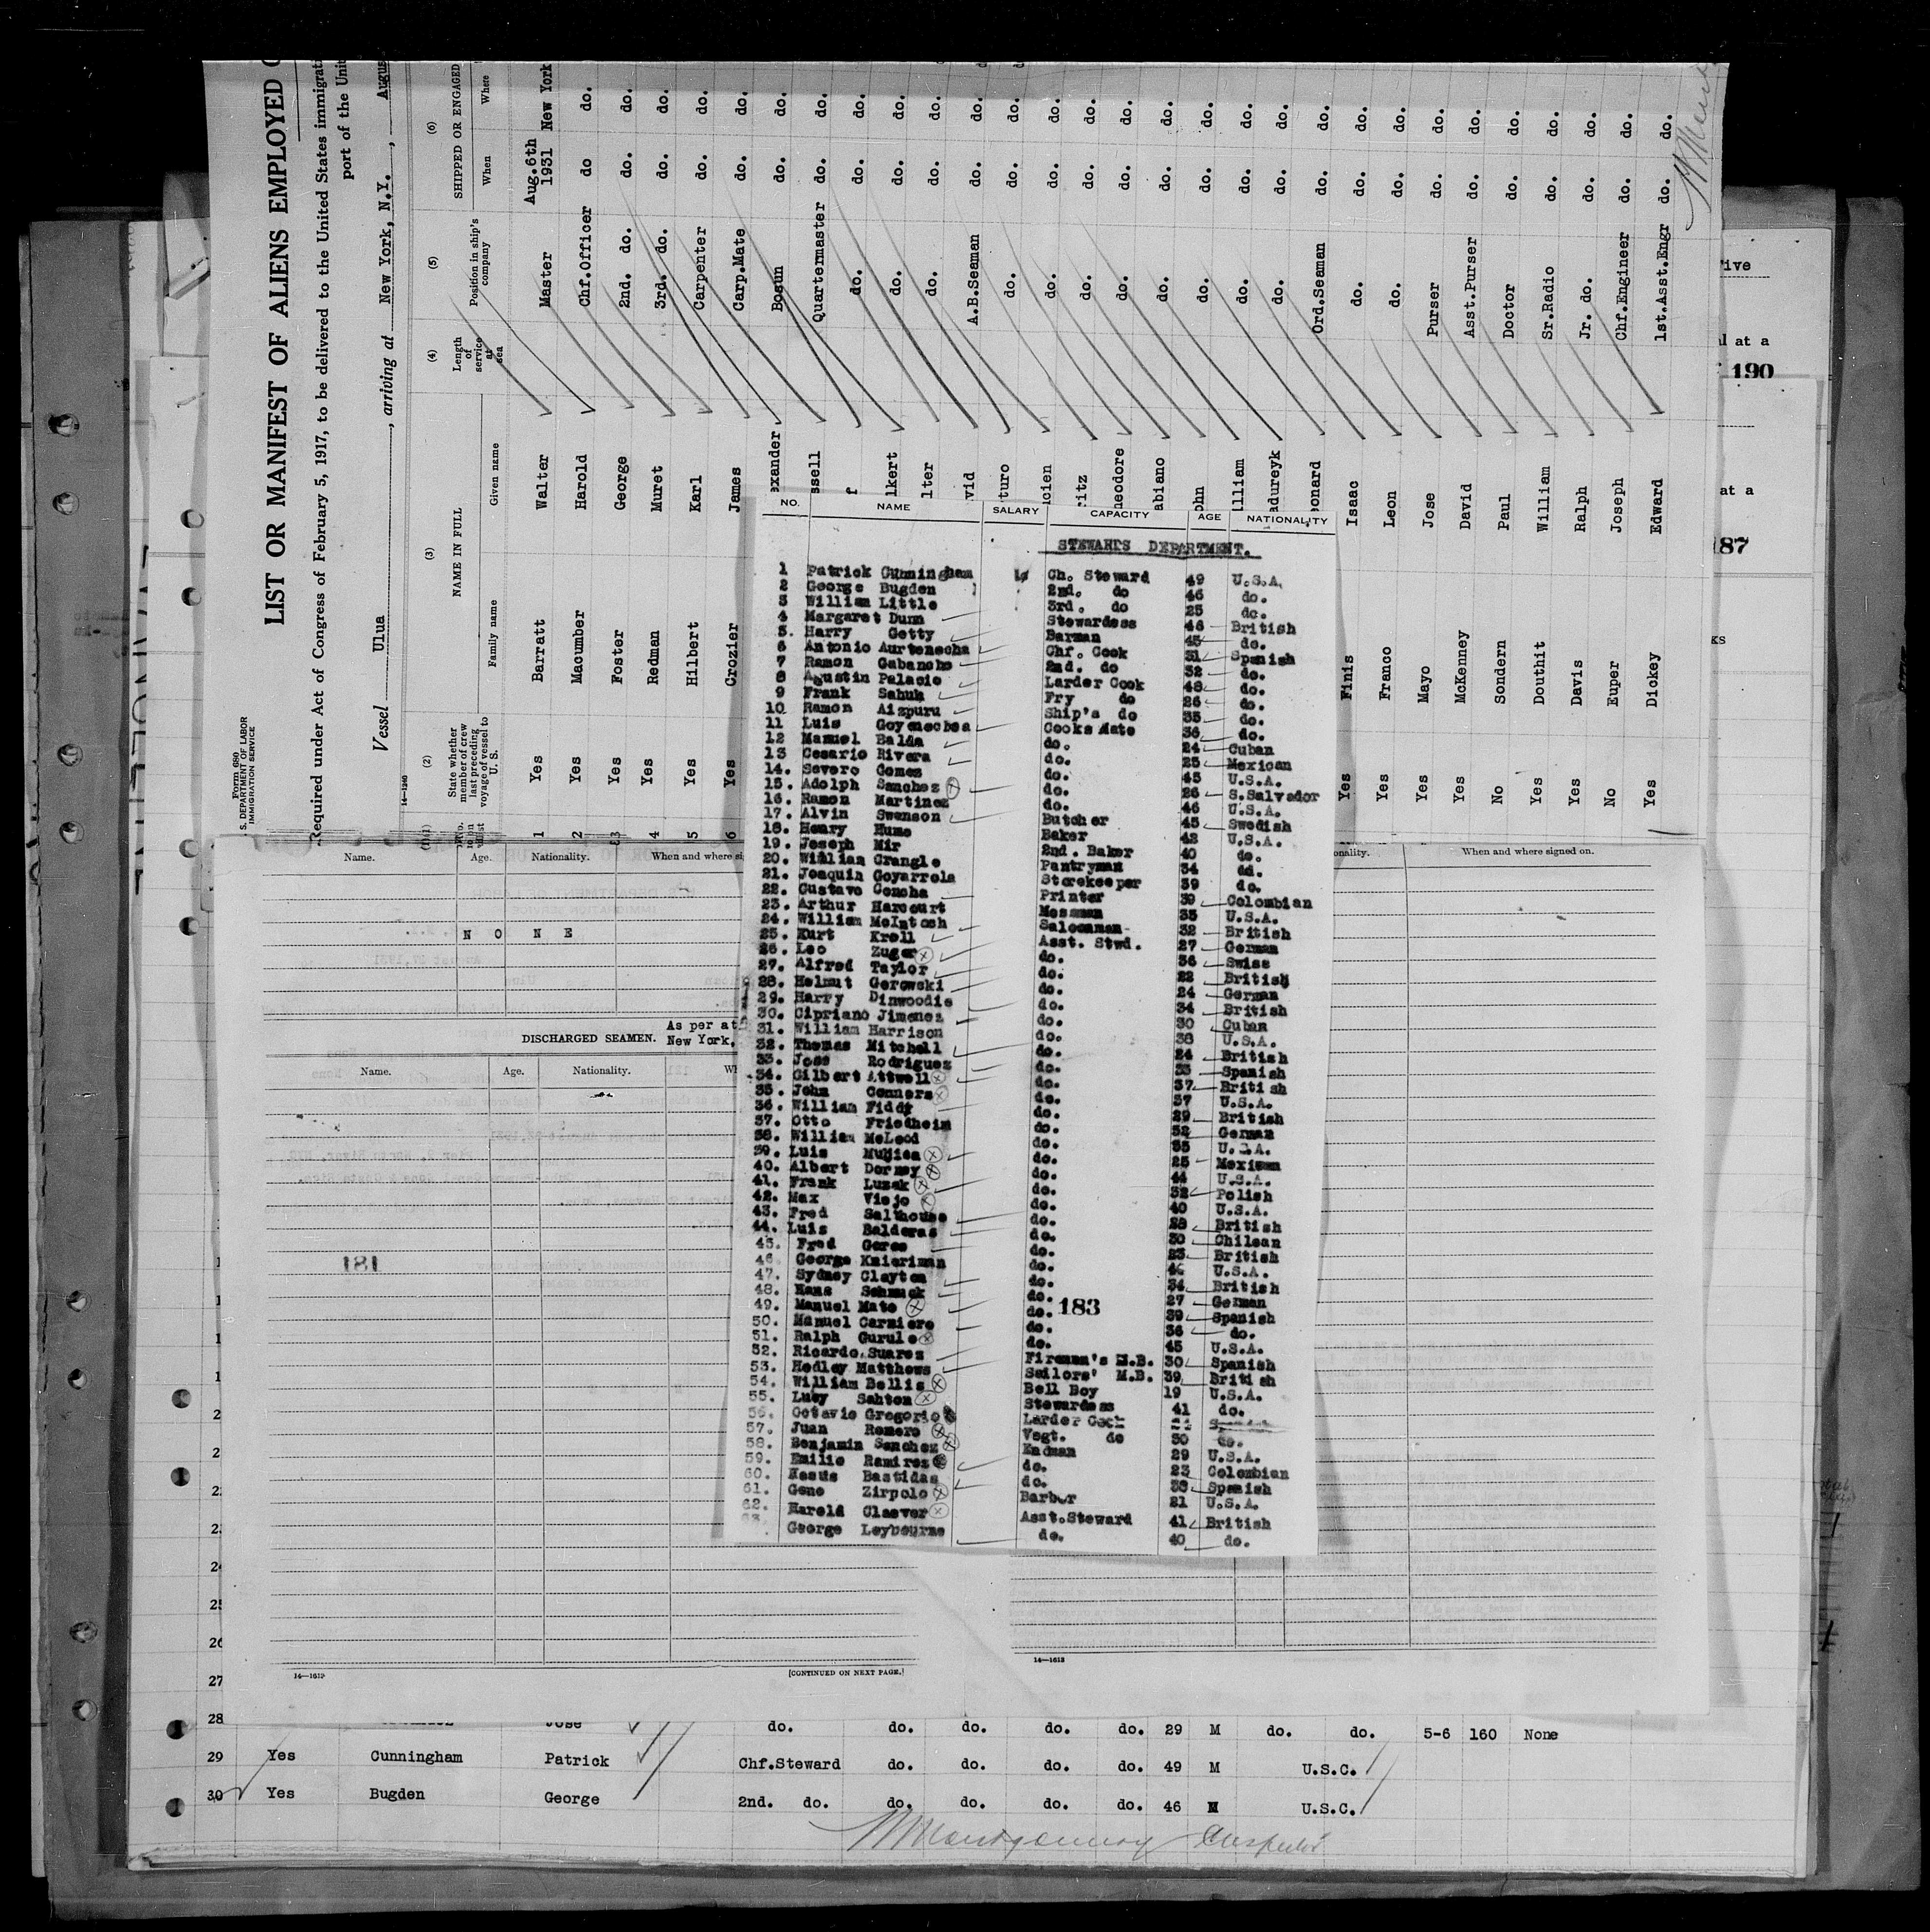 Form 680
S. DEPARTMENT OF LABOR
IMMIGRATION SERVICE
LIST OR MANIFEST OF ALIENS EMPLOYED
Required under Act of Congress of February 5, 1917, to be delivered to the United States
port of the
Vessel Ulua, arriving at New York, N.Y.,
14-1240
(2) (3) (4) (5) (6)
State whether member of crew last preceding voyage of vessel to U. S. NAME IN FULL Length of service at sea Position in ship's company SHIPPED OR ENGAGED
Family name Given name When Where
1 Yes Barratt Walter Master Aug.6th 1931 New York
2 Yes Macumber Harold Chf.Officer do do.
3 Yes Foster George 2nd. do. do. do.
4 Yes Redman Muret 3rd. do. do. do.
5 Yes Hilbert Karl Carpenter do. do.
6 Yes Crozier James Carp.Mate do. do.
Bosun do. do.
Quartermaster do. do.
do. do. do.
do. do. do.
do. do. do.
A.B.Seaman do. do.
do. do. do.
do. do. do.
do. do. do.
do. do. do.
do. do. do.
do. do. do.
do. do. do.
do. do. do.
Ord.Seaman do. do.
Yes Finis Isaac do. do. do.
Yes Franco Leon do. do. do.
Yes Mayo Jose Purser do. do.
Yes McKenney David Asst.Purser do. do.
No Sondern Paul Doctor do. do.
Yes Douthit William Sr.Radio do. do.
Yes Davis Ralph Jr. do. do. do.
No Euper Joseph Chf.Engineer do. do.
Yes Dickey Edward 1st.Asst.Engr do. do.
at a
190
at a
187
NO. NAME SALARY CAPACITY AGE NATIONALITY
STEWARDS DEPARTMENT.
1 Patrick Cunningham Ch. Steward 49 U.S.A.
2 George Bugden 2nd. do 46 do.
3 William Little 3rd. do 25 do.
4 Margaret Dunn Stewardess 46 British
5. Harry Getty Barman 45 do.
6 Antonio Aurtenecha Chf. Cook 31 Spanish
7 Ramon Gabancho 2nd. do 32 do.
8 Agustin Palacio Larder Cook 48 do.
9 Frank Sahuk Fry do 26 do.
10 Ramon Aizpuru Ship's do 35 do.
11 Luis Goyenechea Cooks Mate 36 do.
12 Manuel Balda do. 24 Cuban
13 Cesario Rivera do. 25 Mexican
14. Severo Gomez do. 45 U.S.A.
15. Adolph Sanchez do. 26 S.Salvador
16. Ramon Martinez do. 46 U.S.A.
17. Alvin Swenson Butcher 45 Swedish
18. Henry Hume Baker 42 U.S.A.
19. Joseph Mir 2nd. Baker 40 do.
20. William Crangle Pantryman 34 do.
21. Joaquin Goyarrola Storekeeper 39 do.
22. Gustavo Concha Printer 39 Colombian
23. Arthur Harcourt Messman 35 U.S.A.
24. William McIntosh Saloonman 32 British
25. Kurt Krell Asst. Stwd. 27 German
26. Leo Zuger do. 36 Swiss
27. Alfred Taylor do. 22 British
28. Helmut Gerowski do. 24 German
29. Harry Dinwoodie do. 34 British
30. Cipriano Jimenez do. 30 Cuban
31. William Harrison do. 38 U.S.A.
32. Thomas Mitchell do. 24 British
33. Jose Rodriguez do. 35 Spanish
34. Gilbert Attwell do. 37 British
35. John Conners do. 37 U.S.A.
36. William Fiddy do. 29 British
37. Otto Friedheim do. 32 German
38. William McLeod do. 35 U.S.A.
39. Luis Mujica do. 25 Mexican
40. Albert Dorney do. 44 U.S.A.
41. Frank Luzak do. 32 Polish
42. Max Viejo do. 40 U.S.A.
43. Fred Salthouse do. 28 British
44. Luis Balderas do. 30 Chilean
45. Fred Goree do. 23 British
46. George Knieriman do. 46 U.S.A.
47. Sydney Clayton do. 34 British
48. Hans Schmuck do. 27 German
49. Manuel Mato do. 183 39 Spanish
50. Manuel Carniero do. 36 do.
51. Ralph Gurule do. 45 U.S.A.
52. Ricardo Suarez Fireman's M.B. 30 Spanish
53. Hedley Matthews Sailors' M.B. 39 British
54. William Bellis Bell Boy 19 U.S.A.
55. Lucy Sahton Stewardess 41 do.
56. Octavio Gregorio Larder Cook Spanish
57. Juan Romero Vegt. do 30 do.
58. Benjamin Sanchez Kndman 29 U.S.A.
59. Emilio Ramirez do. 23 Colombian
60. Bastidas do. 38 Spanish
61. Gene Zirpolo Barber 21 U.S.A.
62. Harold Cleaver Asst.Steward 41 British
George Leybourne do. 40 do.
Name. Age. Nationality. When and where When and where signed on.
N O N E
DISCHARGED SEAMEN. As per
New York,
Name. Age. Nationality.
181
14-1613 [CONTINUED ON NEXT PAGE.] 14-1613
24
25
26
27
28 Jose do. do. do. do. do. 29 M do. do. 5-6 160 None
29 Yes Cunningham Patrick Chf.Steward do. do. do. do. 49 M U.S.C.
30 Yes Bugden George 2nd. do. do. do. do. do. 46 M U.S.C.
Montgomery Inspector